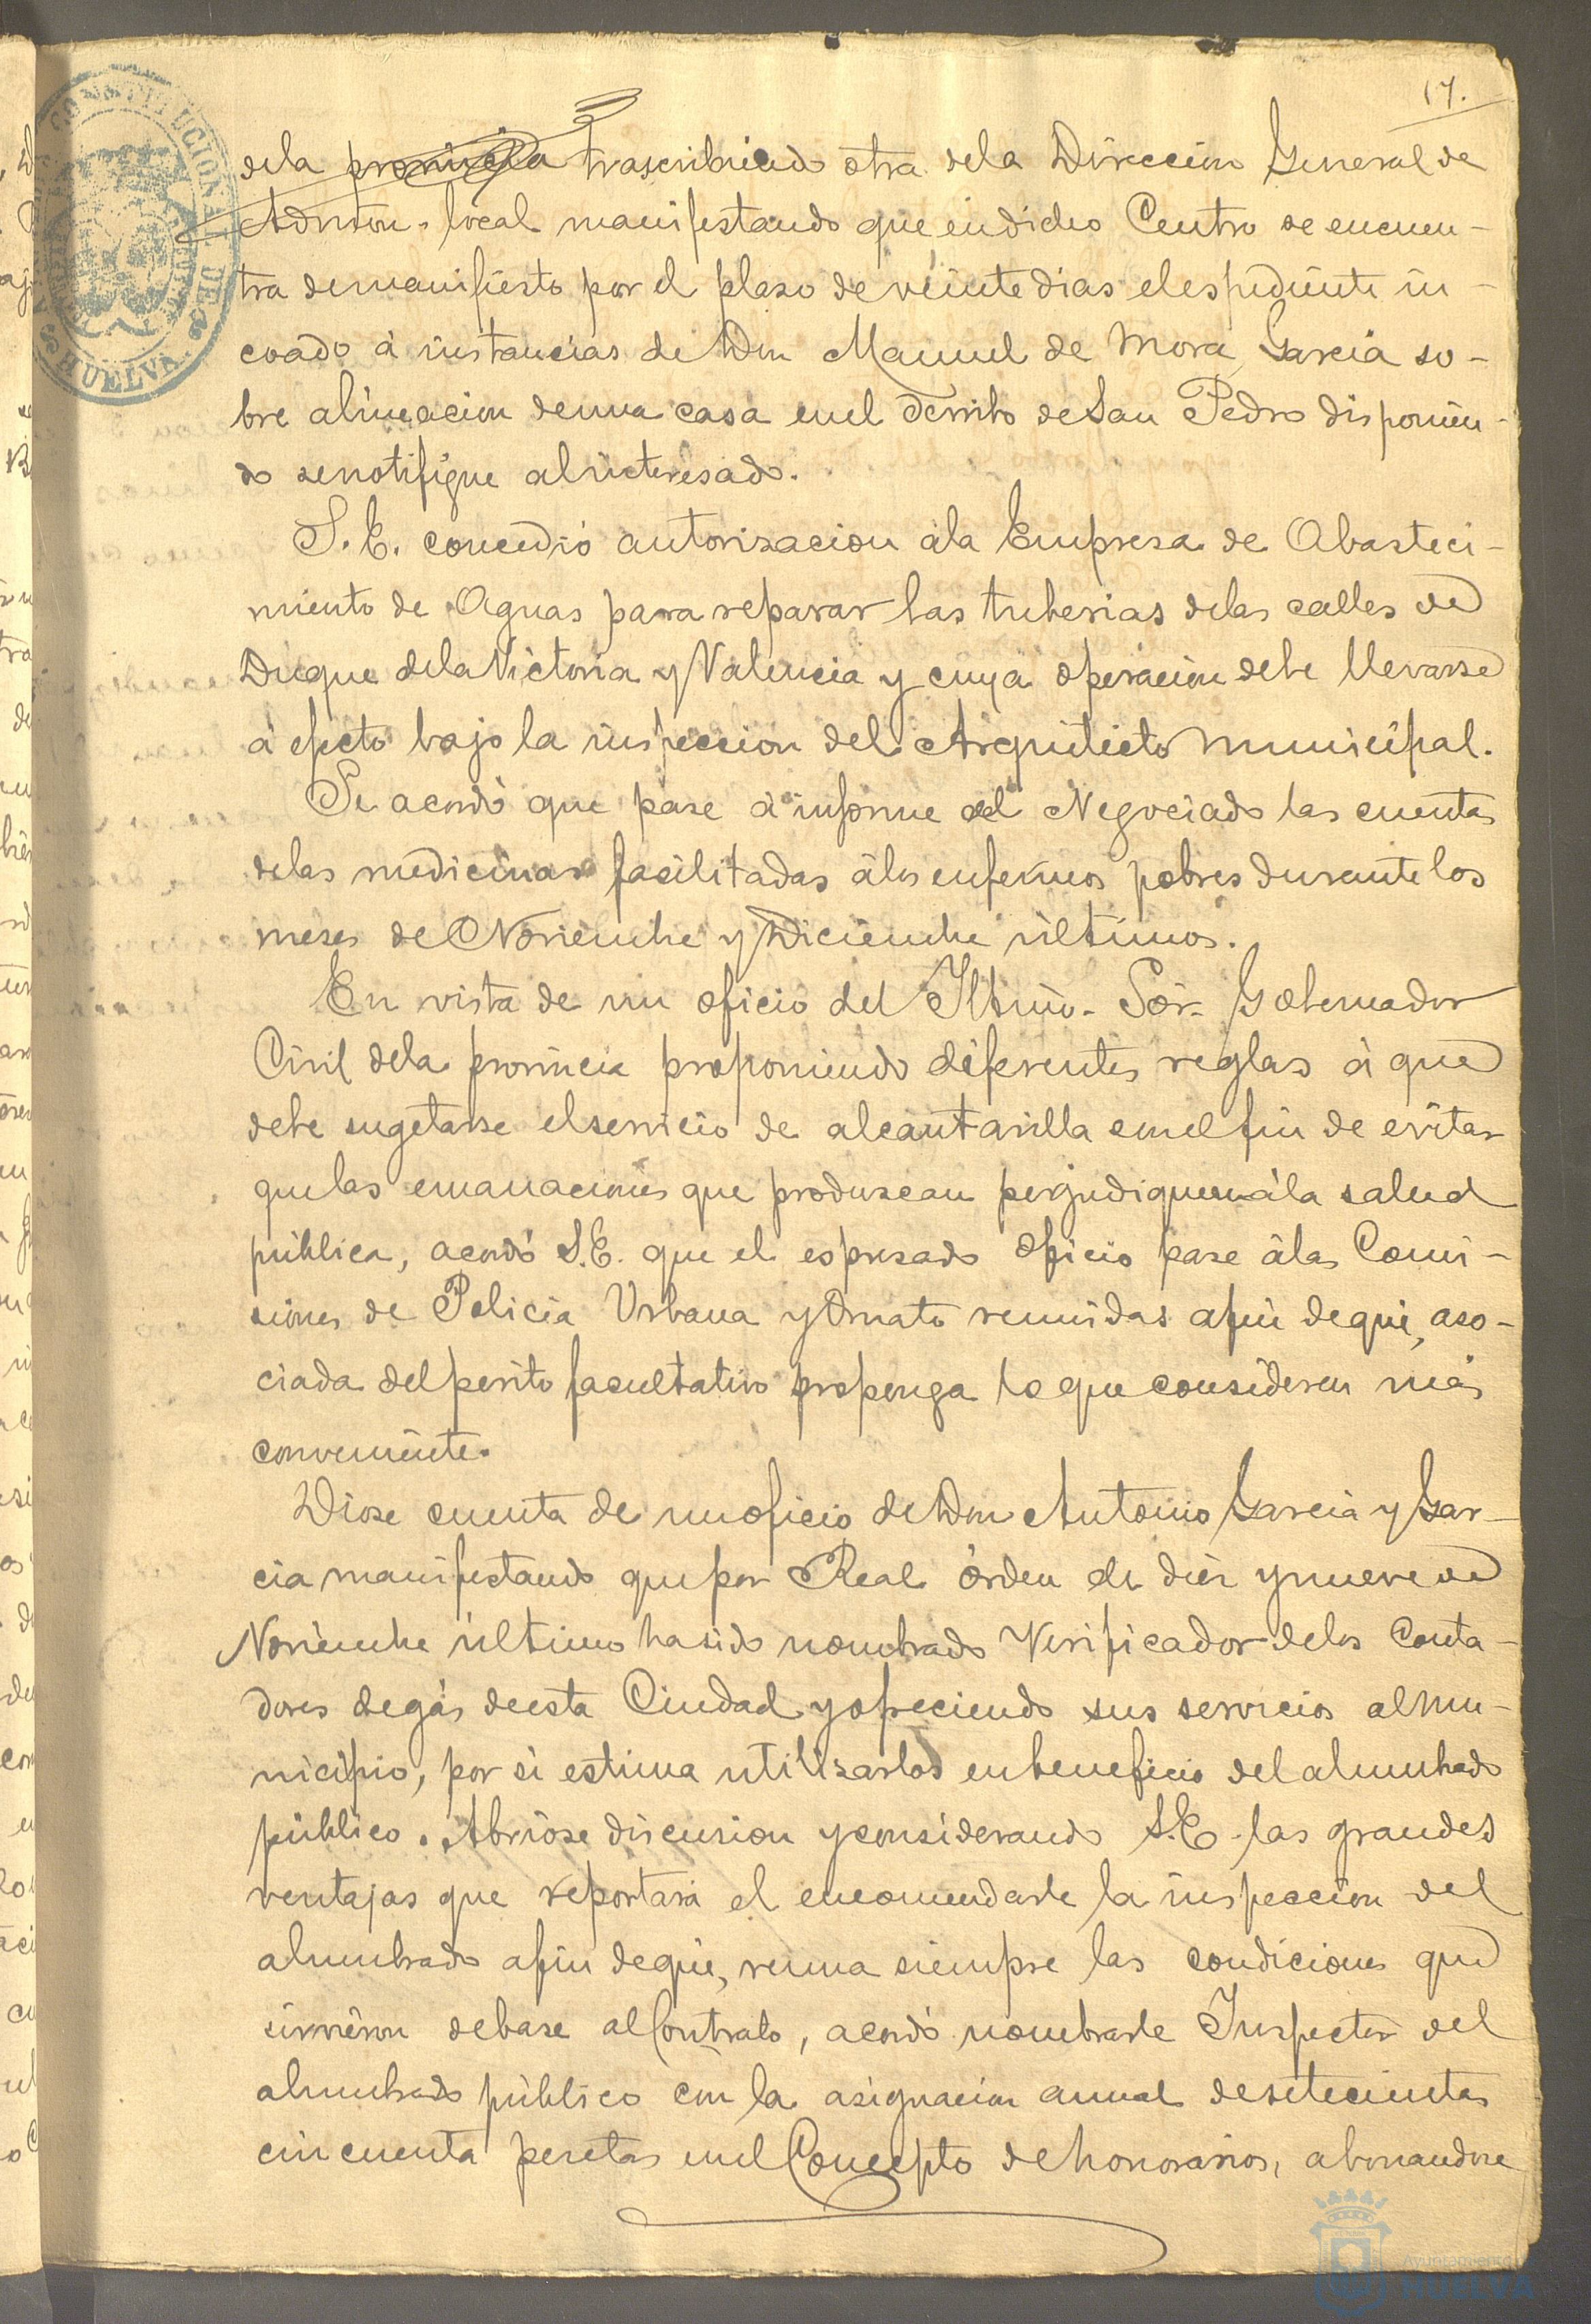 17.
dela provincia trascribiendo otra dela Direccion General de
Admon. local manifestando que en dicho Centro se encuen-
tra de manifiesto por el plazo de veinte dias el espediente in-
coado á instancias de Don Manuel de Mora Garcia so-
bre alineacion de una casa en el derribo de San Pedro disponien-
do se notifique al interesado.
S. E. concedió autorizacion á la Empresa de Abasteci-
miento de Aguas para reparar las tuberias delas calles de
Duque de la Victoria y Valencia y cuya operacion debe llevarse
á efecto bajo la inspeccion del Arquitecto Municipal.
Se acordó que pase á informe del Negociado las cuentas
delas medicinas facilitadas á los enfermos pobres durante los
meses de Noviembre y Diciembre últimos.
En vista de un oficio del Iltmo. Sor. Gobernador
Civil dela provincia proponiendo diferentes reglas á que
debe sugetarse el servicio de alcantarilla con el fin de evitar
que las emanaciones que produzcan perjudiquen á la salud
pública, acordó S.E. que el espresado oficio pase á las Comi-
siones de Policia Urbana y Ornato reunidas afin de que, aso-
ciada del perito facultativo proponga lo que consideren más
conveniente.
Diose cuenta de un oficio de Don Antonio Garcia y Gar-
cia manifestando que por Real órden de diez y nueve de
Noviembre último ha sido nombrado Verificador delos Conta-
dores de gás de esta Ciudad y ofreciendo sus servicios al Mu-
nicipio, por si estima utilizarlos en beneficio del alumbrado
público. Abriose discusion y considerando S.E. las grandes
ventajas que reportará el encomendarle la inspeccion del
alumbrado afin de que, reuna siempre las condiciones que
sirvieron de base al Contrato, acordó nombrarle Inspector del
alumbrado público con la asignacion anual de setecientas
cincuenta pesetas en el Concepto de honorarios, abonandose
CONSTITUCIONAL DE
HUELVA
Ayuntamiento
HUELVA